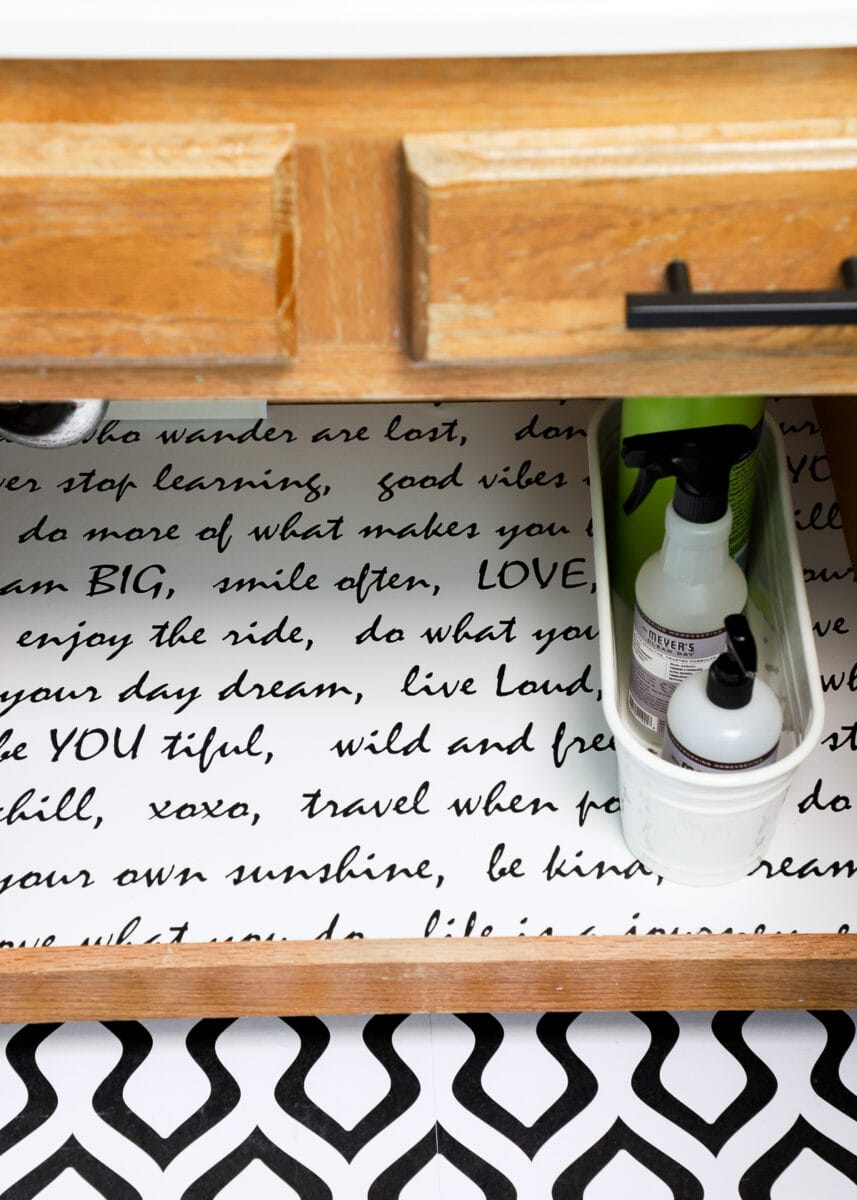 who wander are lost, don
er stop learning, good vibes
do more of what makes you
am BIG, smile often, LOVE,
enjoy the ride, do what you
your day dream, live Loud,
be YOU tiful, wild and free
chill, xoxo, travel when po do
your own sunshine, be kind, ream
ove what you do life is a journey
MEYER'S
CLEAN DAY